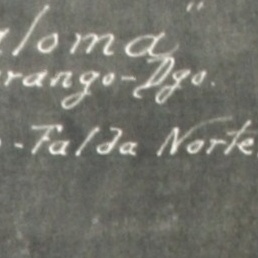 aloma"
urango-Dgo.
-Falda Norte.